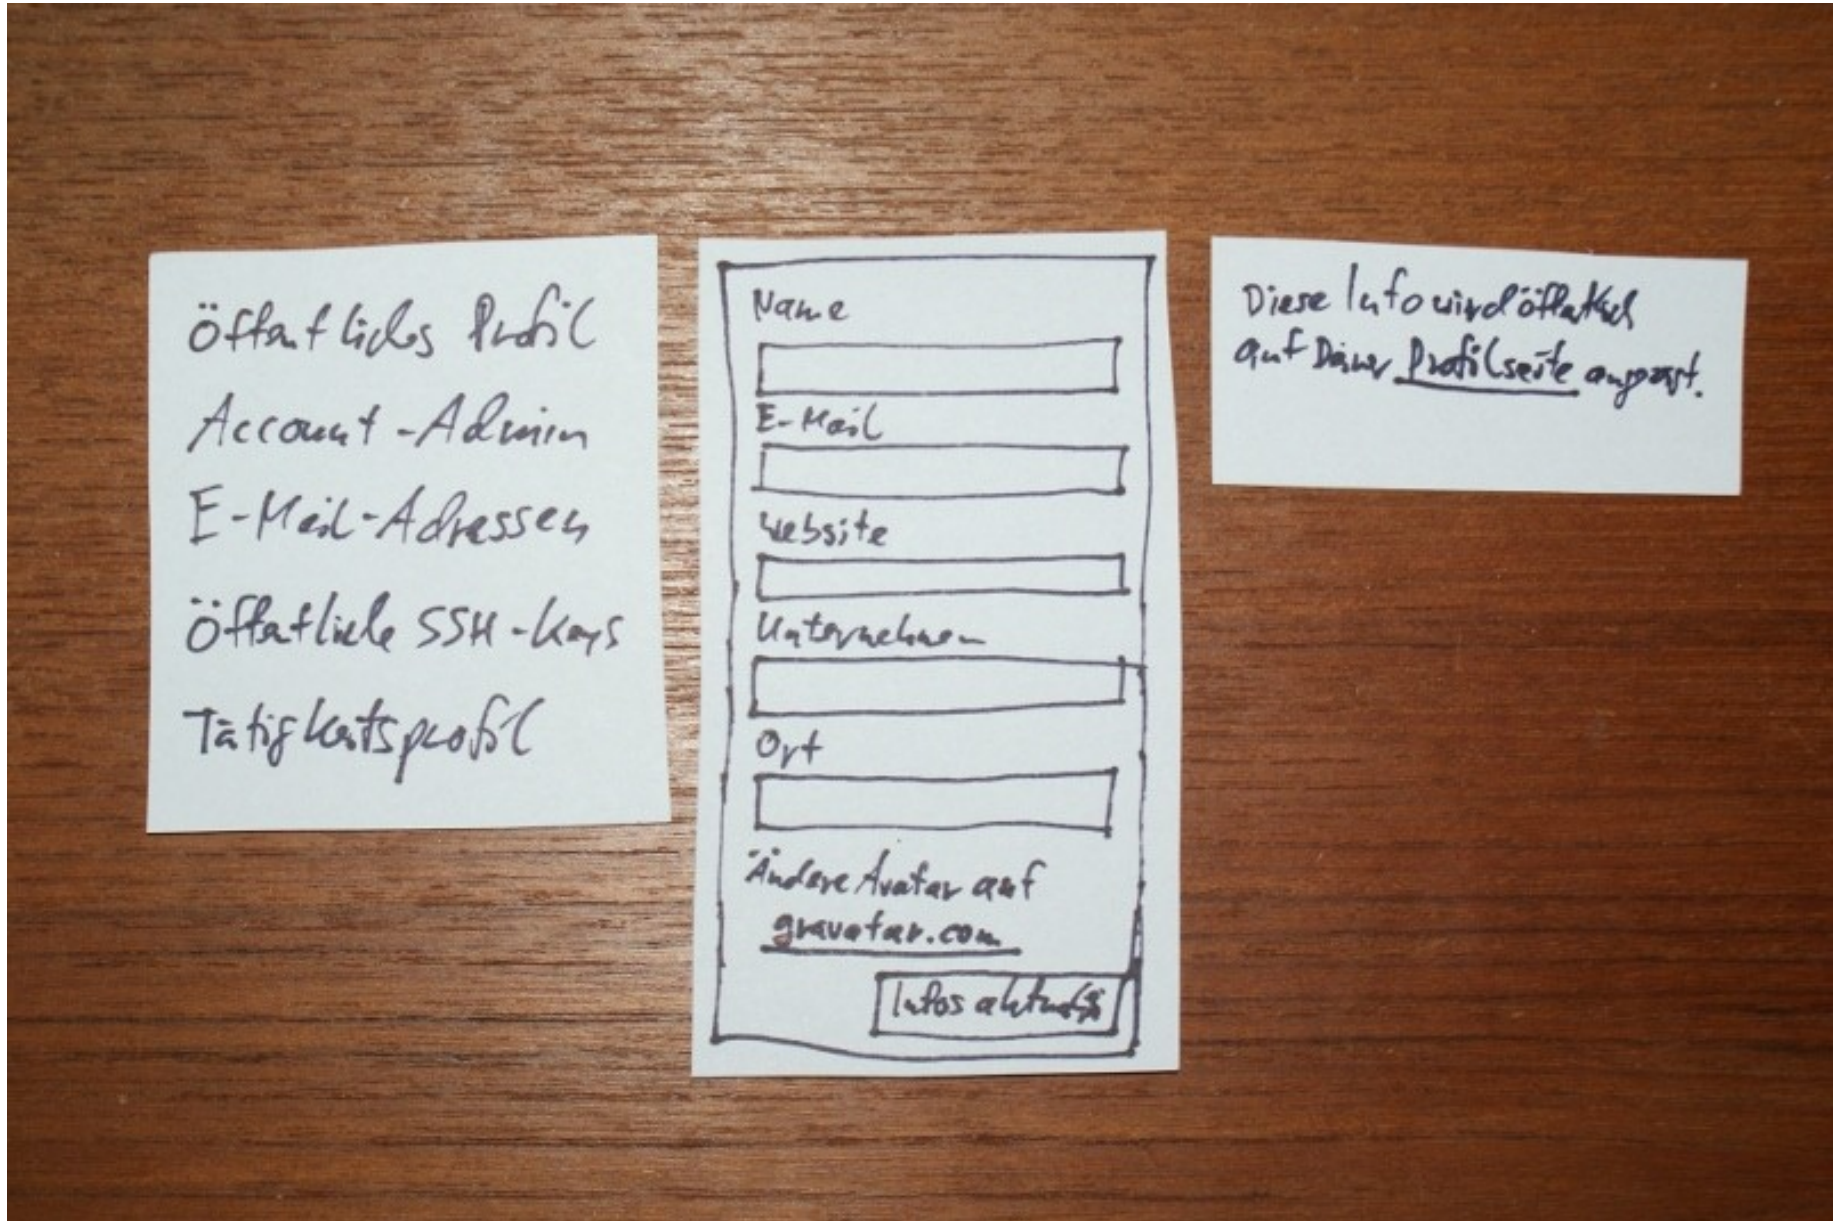 Öffentliches Profil
Account-Admin
E-Mail-Adressen
Öffentliche SSH-Keys
Tätigkeitsprofil
Name
E-Mail
Website
Unternehmen
Ort
Ändere Avatar auf
gravatar.com
Infos
Diese Info wird öffentlich
auf Deiner Profilseite angezeigt.